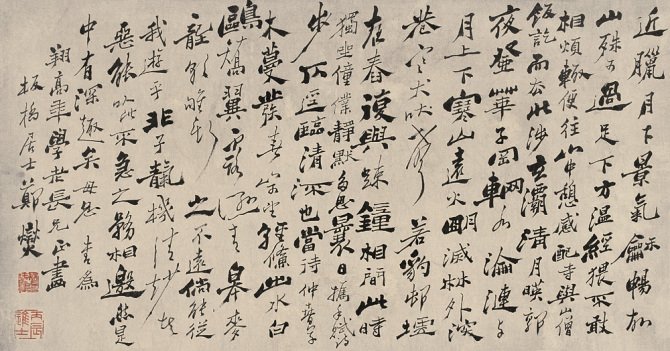 近臘月下景氣龢暢故
山殊可過足下方温經猥不敢
相煩輒便往山中憩感配寺與山僧
飯訖而去北涉玄灞清月暎郭
夜登華子岡輞水淪漣與
月上下寒山遠火明滅林外深
巷寒犬吠聲若豹邨墟
夜舂復與疎鐘相間此時
獨坐僮僕靜默多思曩日攜手賦詩
步仄逕臨清流也當待仲春草
木蔓發春山可望輕鯈出水白
鷗矯翼露濕青皋麥
隴朝雊斯之不遠倘能從
我遊乎非子天機清妙者
惡能以此不急之務相邀然是
中有深趣矣毋忽書為
翔高年學老長兄正
板橋居士鄭燮
丙辰進士